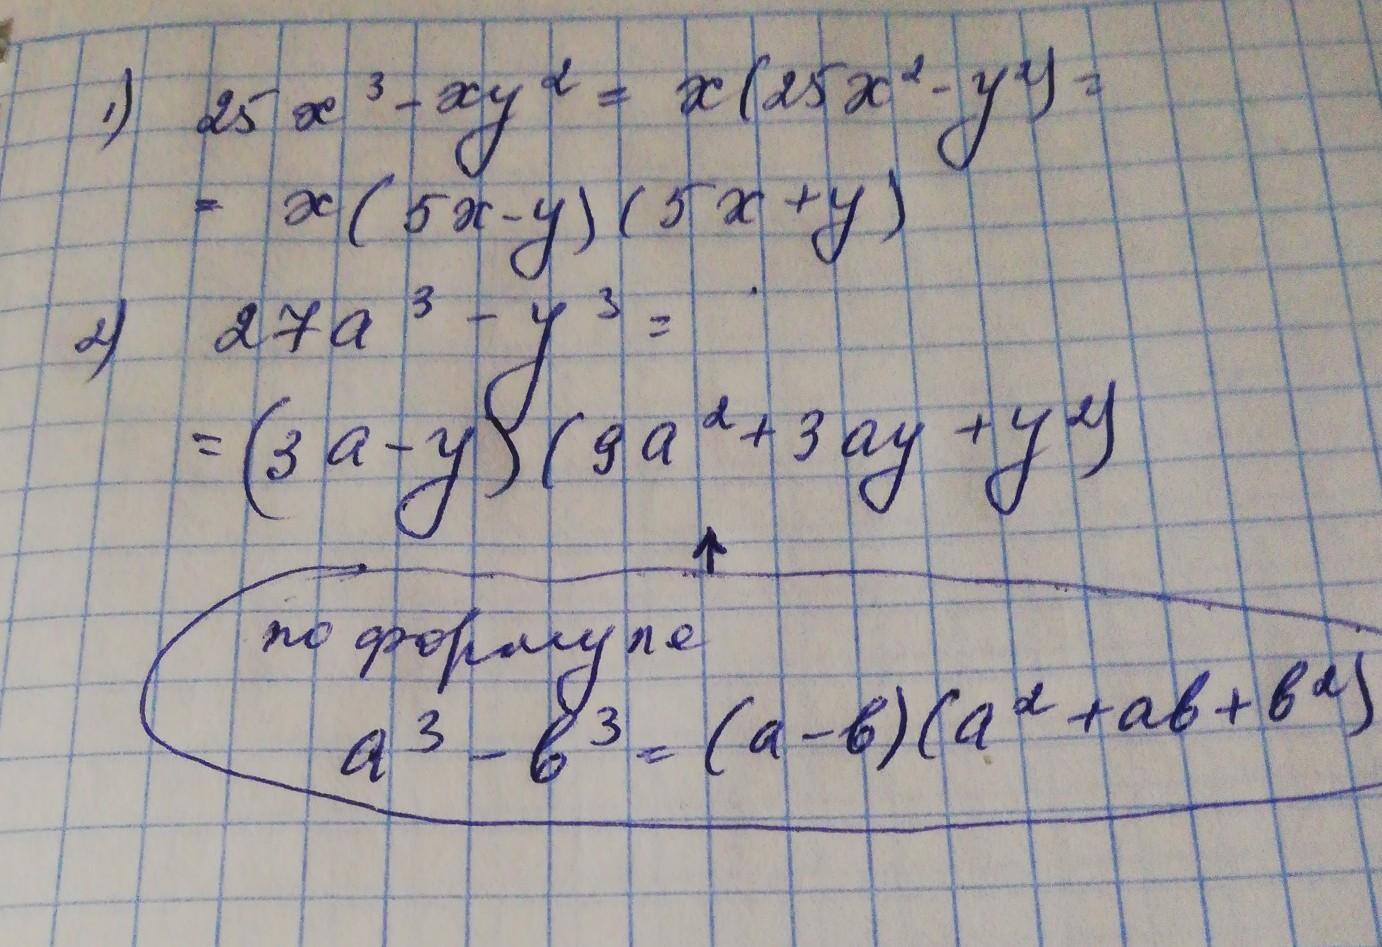 1) 25x³ - xy² = x(25x² - y²) =
= x(5x - y)(5x + y)
2) 27a³ - y³ =
= (3a - y)(9a² + 3ay + y²)
↑
по формуле
a³ - в³ = (a - в)(a² + ав + в²)